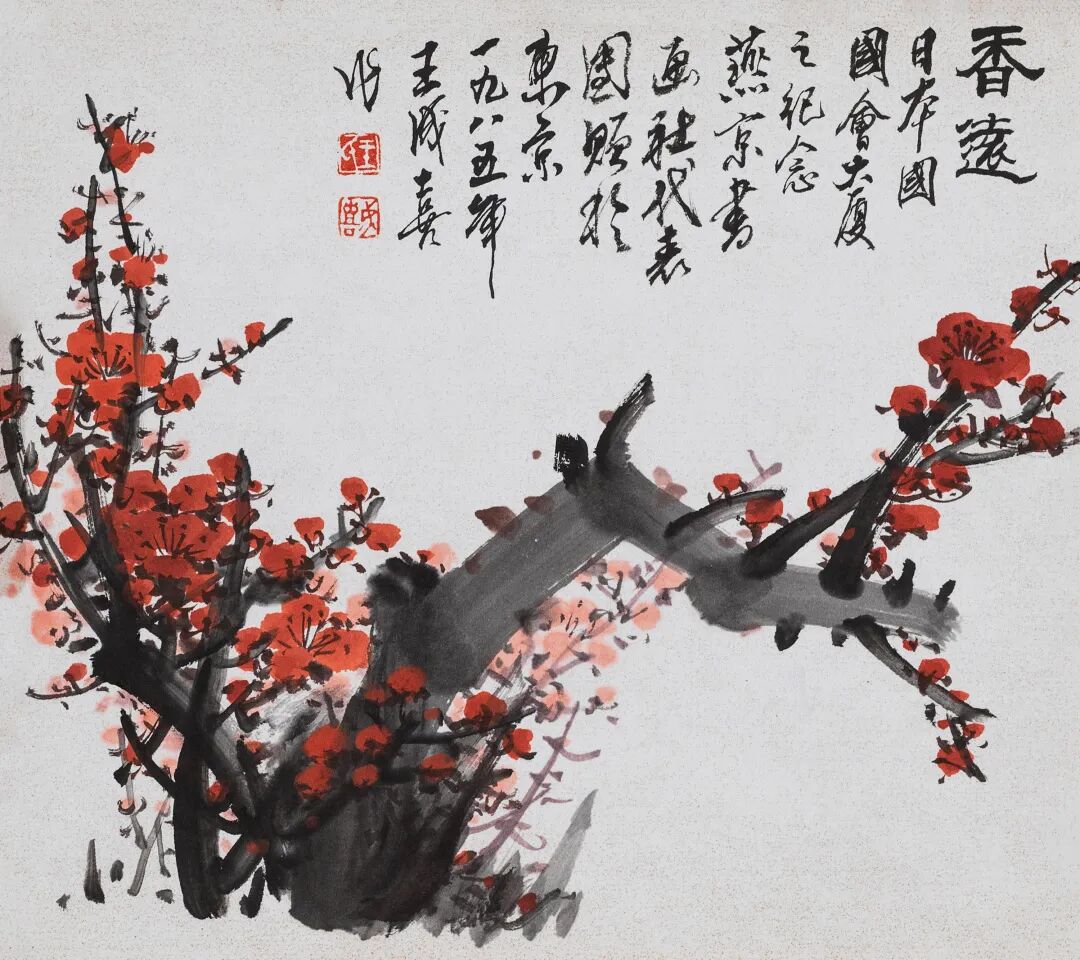 香遠
日本國
國會大厦
之紀念
燕京書
画社代表
團贈於
東京
一九八五年
王成喜
作
王
成喜